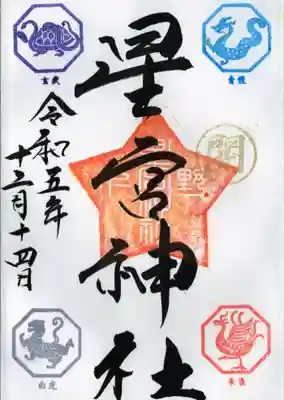 星宮神社
令和五年
十二月十四日
玄武
青龍
白虎
朱雀